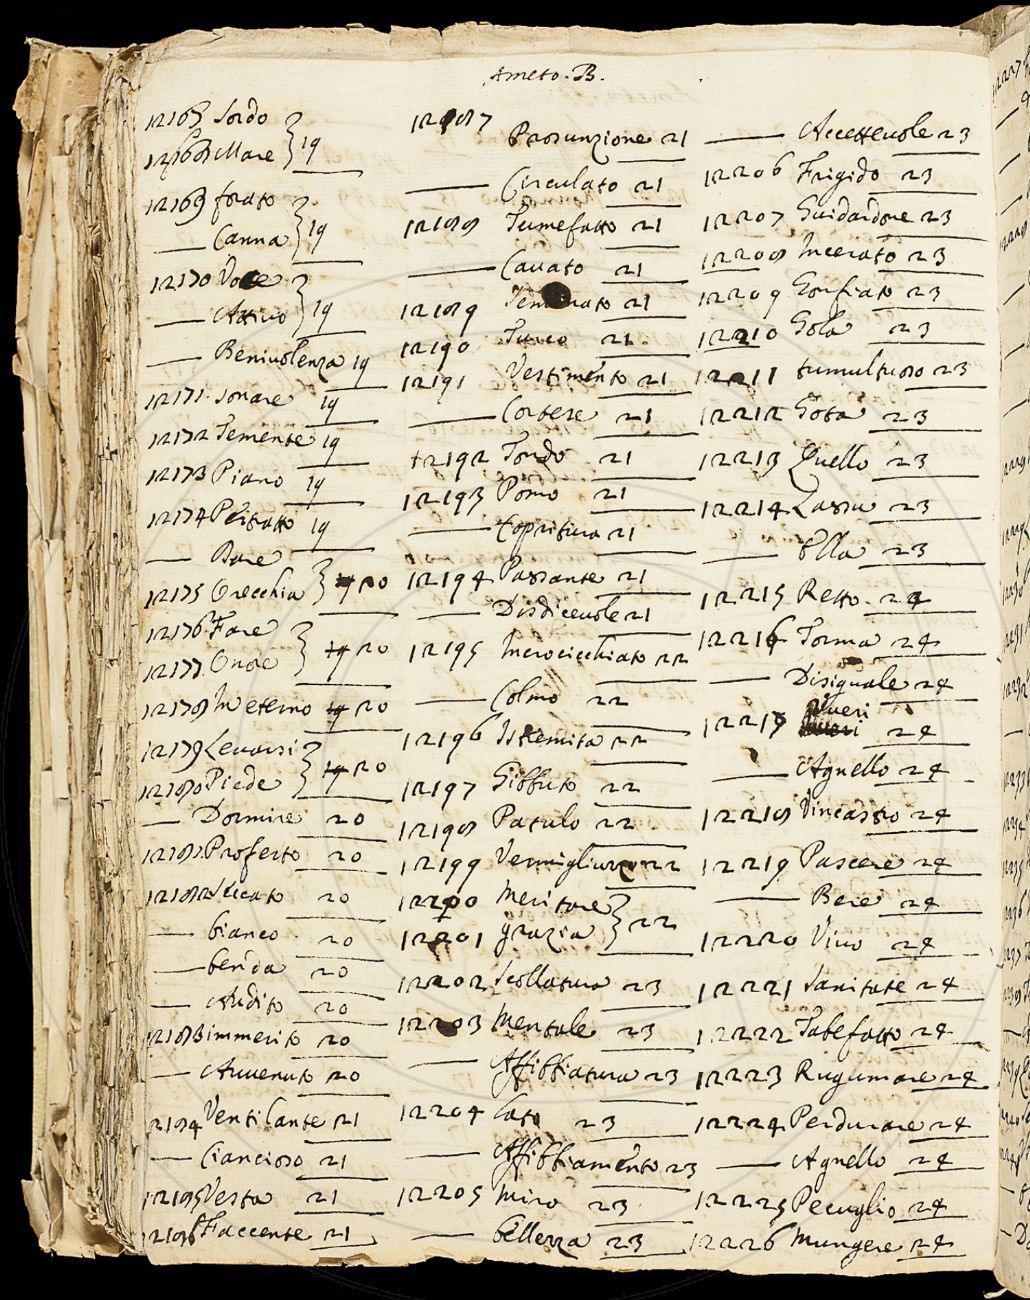 Ameto. B.
12165 Sordo
12168 Mare } 19
12169 forato
— Canna } 19
12170 Voce
— Attivo } 19
— Benivolenza 19
12171 sonare 19
12172 Temente 19
12173 Piano 19
12174 19
— Bere
12175 Orecchia } 20
12176 Fare
12177 Onore } 20
12178 In eterno 20
12179 Levarsi
12180 Piede } 20
— Dormire 20
12181 Proferto 20
12182 20
— bianco 20
— benda 20
— Audito 20
12183 immerito 20
— Avvenuto 20
2184 Ventilante 21
— Ciancioso 21
12185 Vesta 21
2186 Faccente 21
12187
Prosunzione 21
— Circulato 21
12188 Tumefatto 21
— Cavato 21
12189 21
12190 21
12191 Vestimento 21
— Cortese 21
12192 Tondo 21
12193 Pomo 21
— Copritura 21
12194 Passante 21
— Disdicevole 21
12195 Incrocicchiato 22
— Colmo 22
12196 Istremita 22
12197 Gibbuto 22
12198 Patulo 22
12199 22
12200 Meritare
12201 grazia } 22
12202 Scollatura 23
12203 Mentale 23
— Affibbiatura 23
12204 Lato 23
— Affibbiamento 23
12205 Miro 23
— bellezza 23
— Accettevole 23
12206 Frigido 23
12207 Guidardone 23
12208 Incerato 23
12209 Gonfiato 23
12210 Gola 23
12211 tumultuoso 23
12212 Gota 23
12213 Quello 23
12214 Lassu 23
— Ella 23
12215 Retto 24
12216 Torma 24
— Disiguale 24
12217 24
— Agnello 24
12218 Vincastro 24
12219 Pascere 24
— Bere 24
12220 Vivo 24
12221 Sanitate 24
12222 Tabefatto 24
12223 Rugumare 24
12224 Perdurare 24
— Agnello 24
12225 Peculio 24
12226 Mungere 24